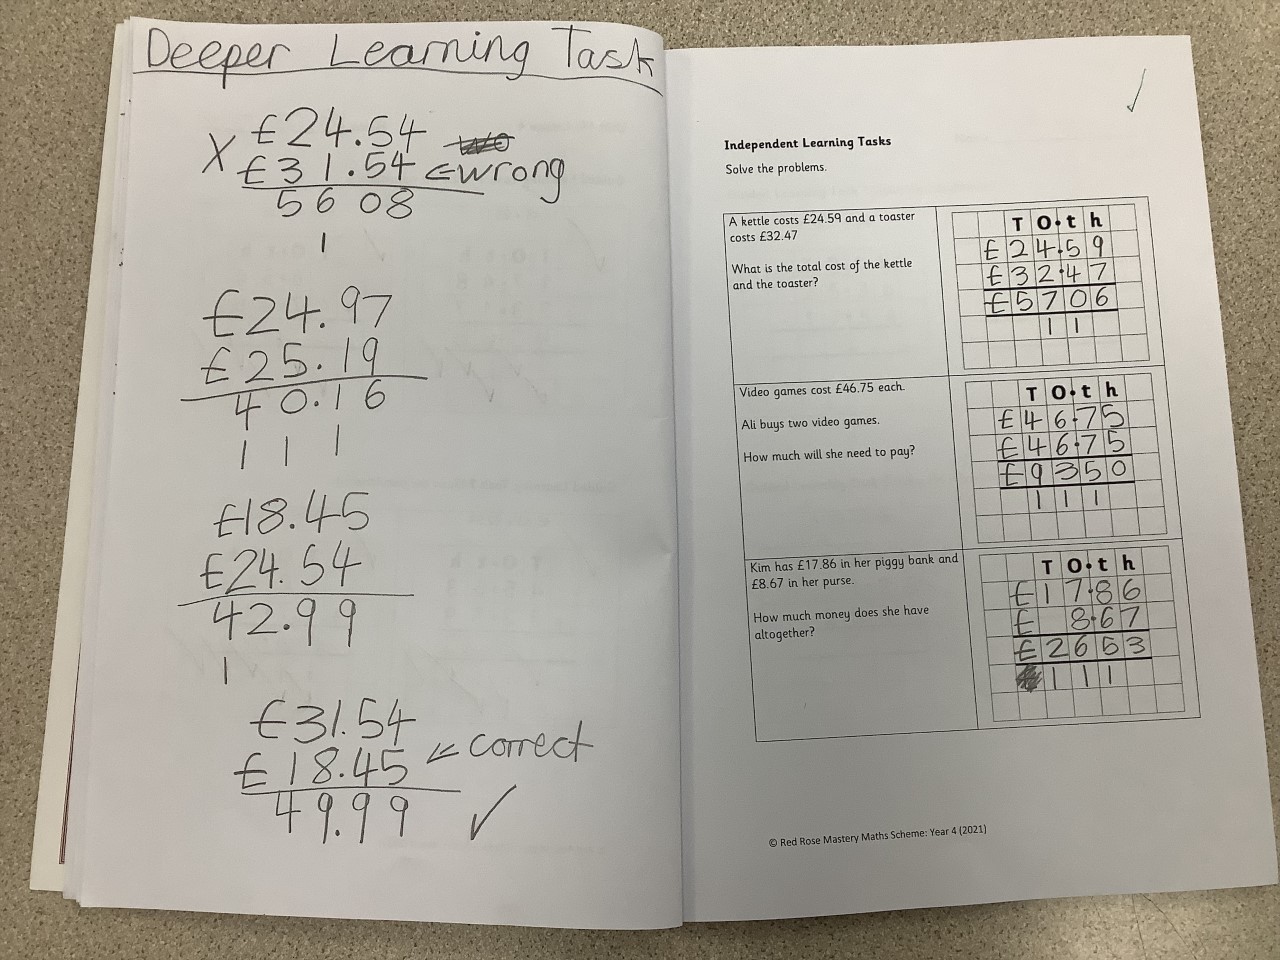 Deeper Learning Task
X £24.54
£31.54 ⇐ wrong
56 08
1
£24.97
£25.19
40.16
1 1 1
£18.45
£24.54
42.99
1
£31.54
£18.45 ⇐ correct
49.99 ✓
✓
Independent Learning Tasks
Solve the problems.
A kettle costs £24.59 and a toaster
costs £32.47
What is the total cost of the kettle
and the toaster?
T O • t h
£24.59
£32.47
£5706
1 1
Video games cost £46.75 each.
Ali buys two video games.
How much will she need to pay?
T O • t h
£46.75
£46.75
£9350
1 1 1
Kim has £17.86 in her piggy bank and
£8.67 in her purse.
How much money does she have
altogether?
T O • t h
£17.86
£ 8.67
£2653
1 1 1
© Red Rose Mastery Maths Scheme: Year 4 (2021)